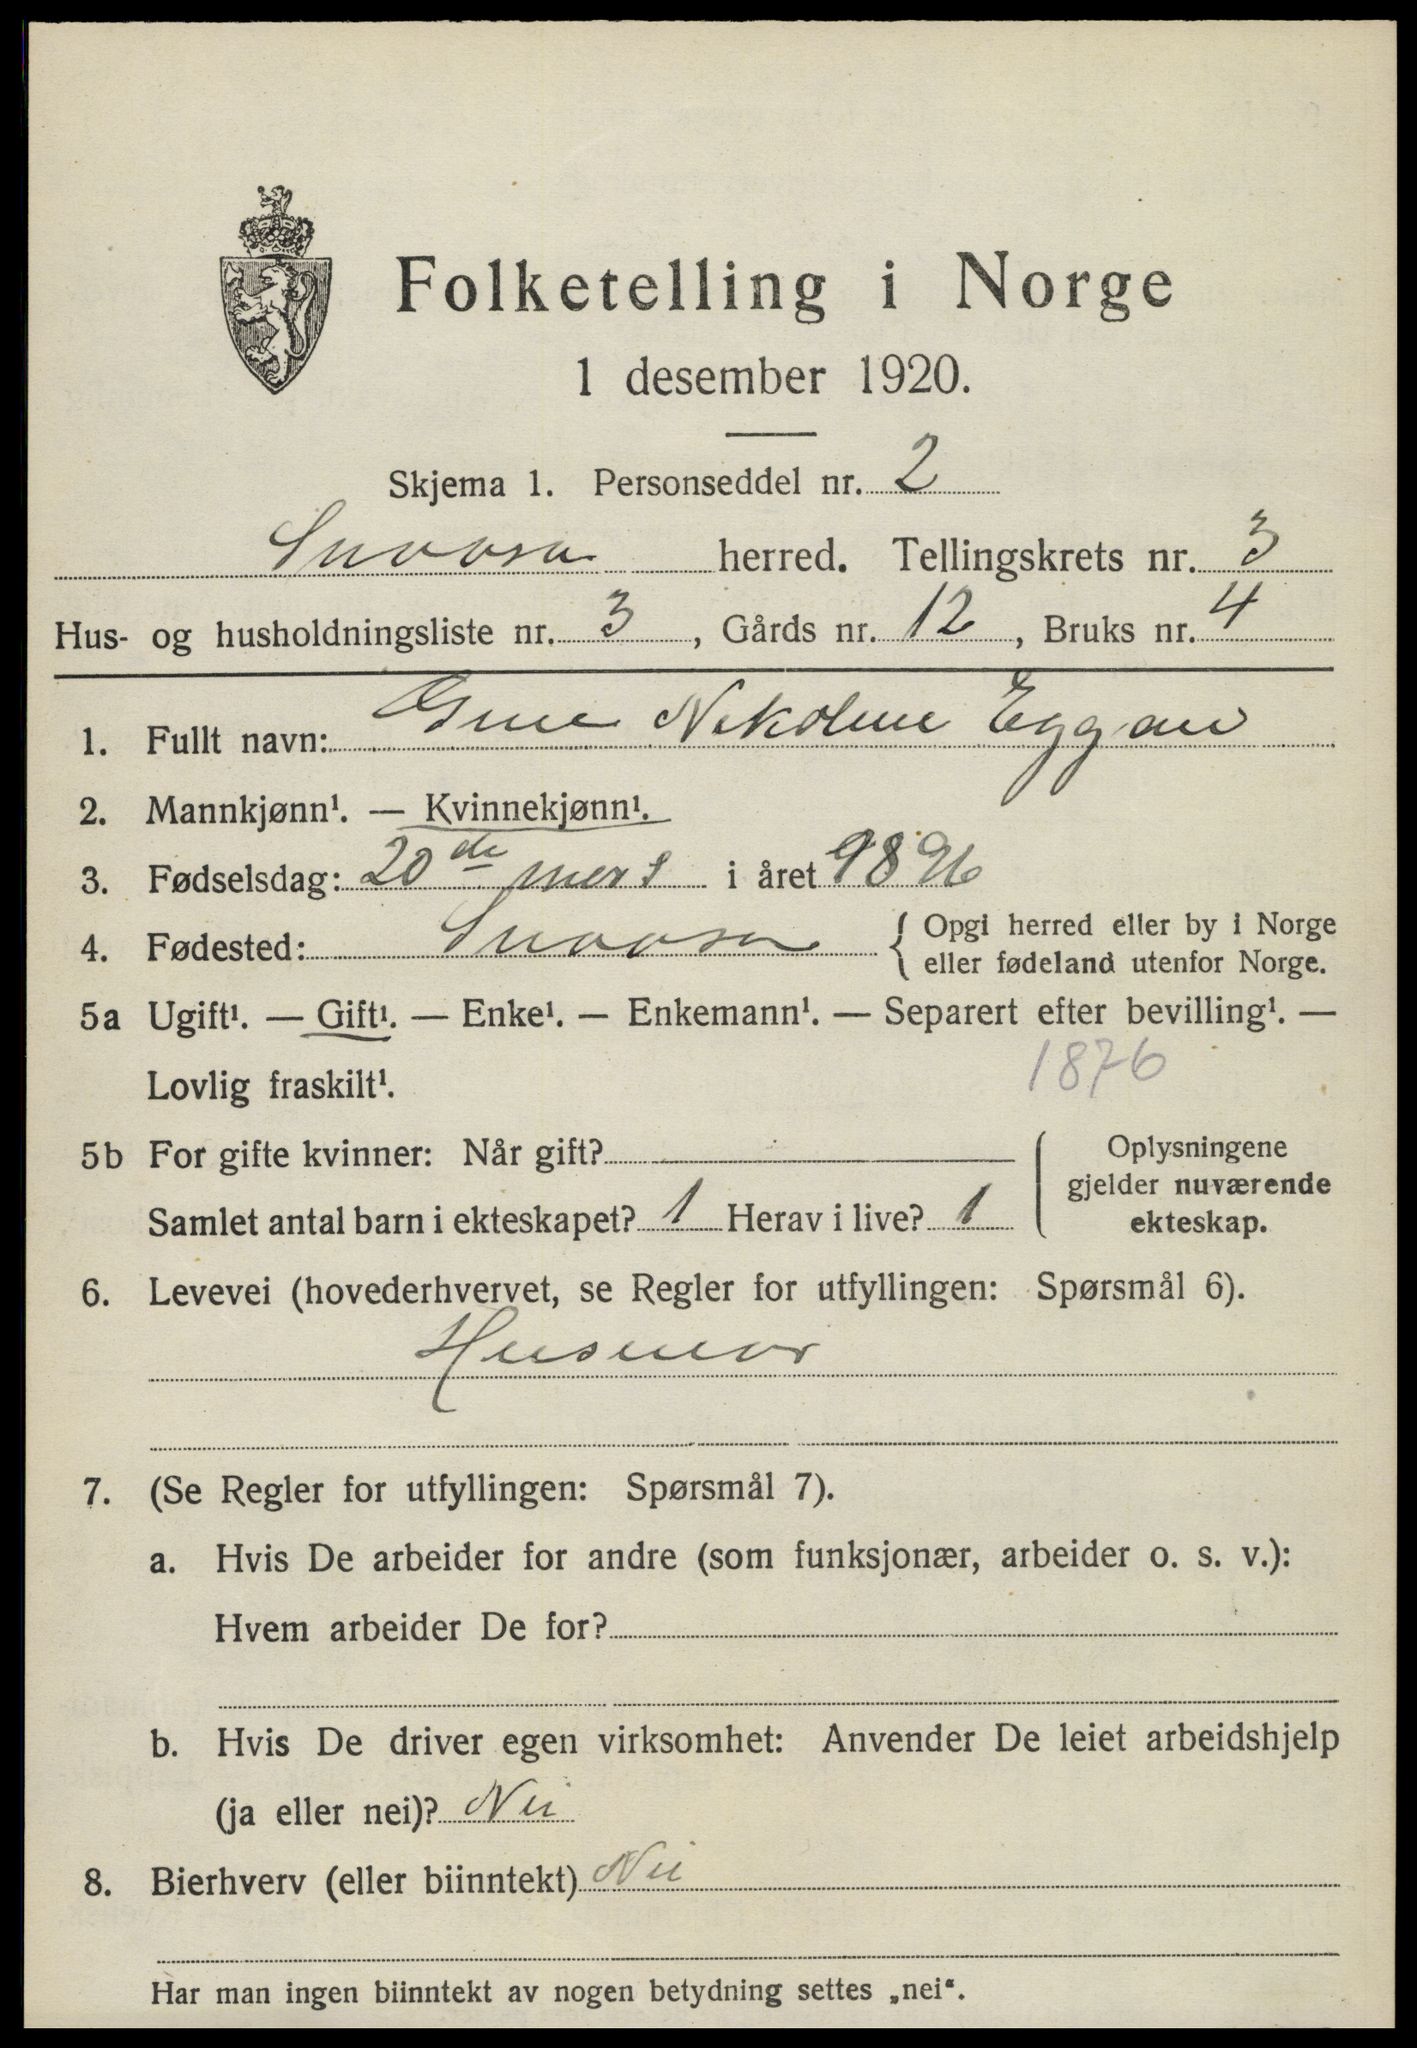 Folketelling i Norge
1 desember 1920.
Skjema 1. Personseddel nr. 2
Snaasa herred. Tellingskrets nr. 3
Hus- og husholdningsliste nr. 3, Gårds nr. 12, Bruks nr. 4
1. Fullt navn: Nekoline Eggan
2. Mannkjønn¹. — Kvinnekjønn¹.
3. Fødselsdag: 20de mars i året 1896
4. Fødested: Snaasa { Opgi herred eller by i Norge
eller fødeland utenfor Norge.
5a Ugift¹. — Gift¹. — Enke¹. — Enkemann¹. — Separert efter bevilling¹. —
Lovlig fraskilt¹. 1876
5b For gifte kvinner: Når gift?
Samlet antal barn i ekteskapet? 1 Herav i live? 1
Oplysningene
gjelder nuværende
ekteskap.
6. Levevei (hovederhvervet, se Regler for utfyllingen: Spørsmål 6).
Husmor
7. (Se Regler for utfyllingen: Spørsmål 7).
a. Hvis De arbeider for andre (som funksjonær, arbeider o. s. v.):
Hvem arbeider De for?
b. Hvis De driver egen virksomhet: Anvender De leiet arbeidshjelp
(ja eller nei)? Nei
8. Bierhverv (eller biinntekt) Nei
Har man ingen biinntekt av nogen betydning settes „nei“.